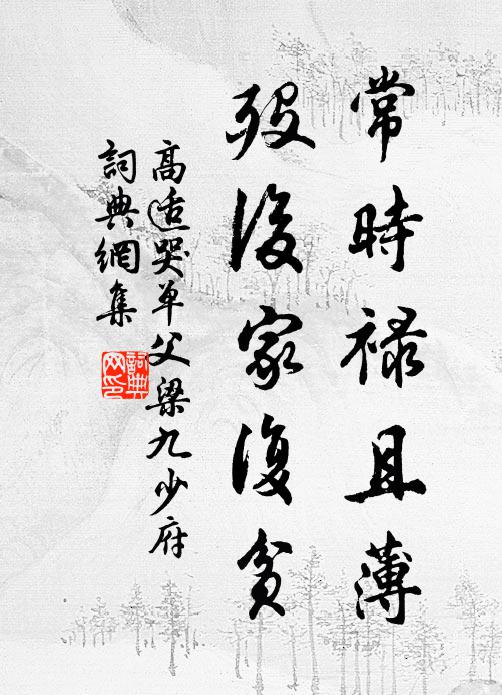 常時禄且薄
殁後家復貧
高适哭单父梁九少府
詞典網集
詞典
网印